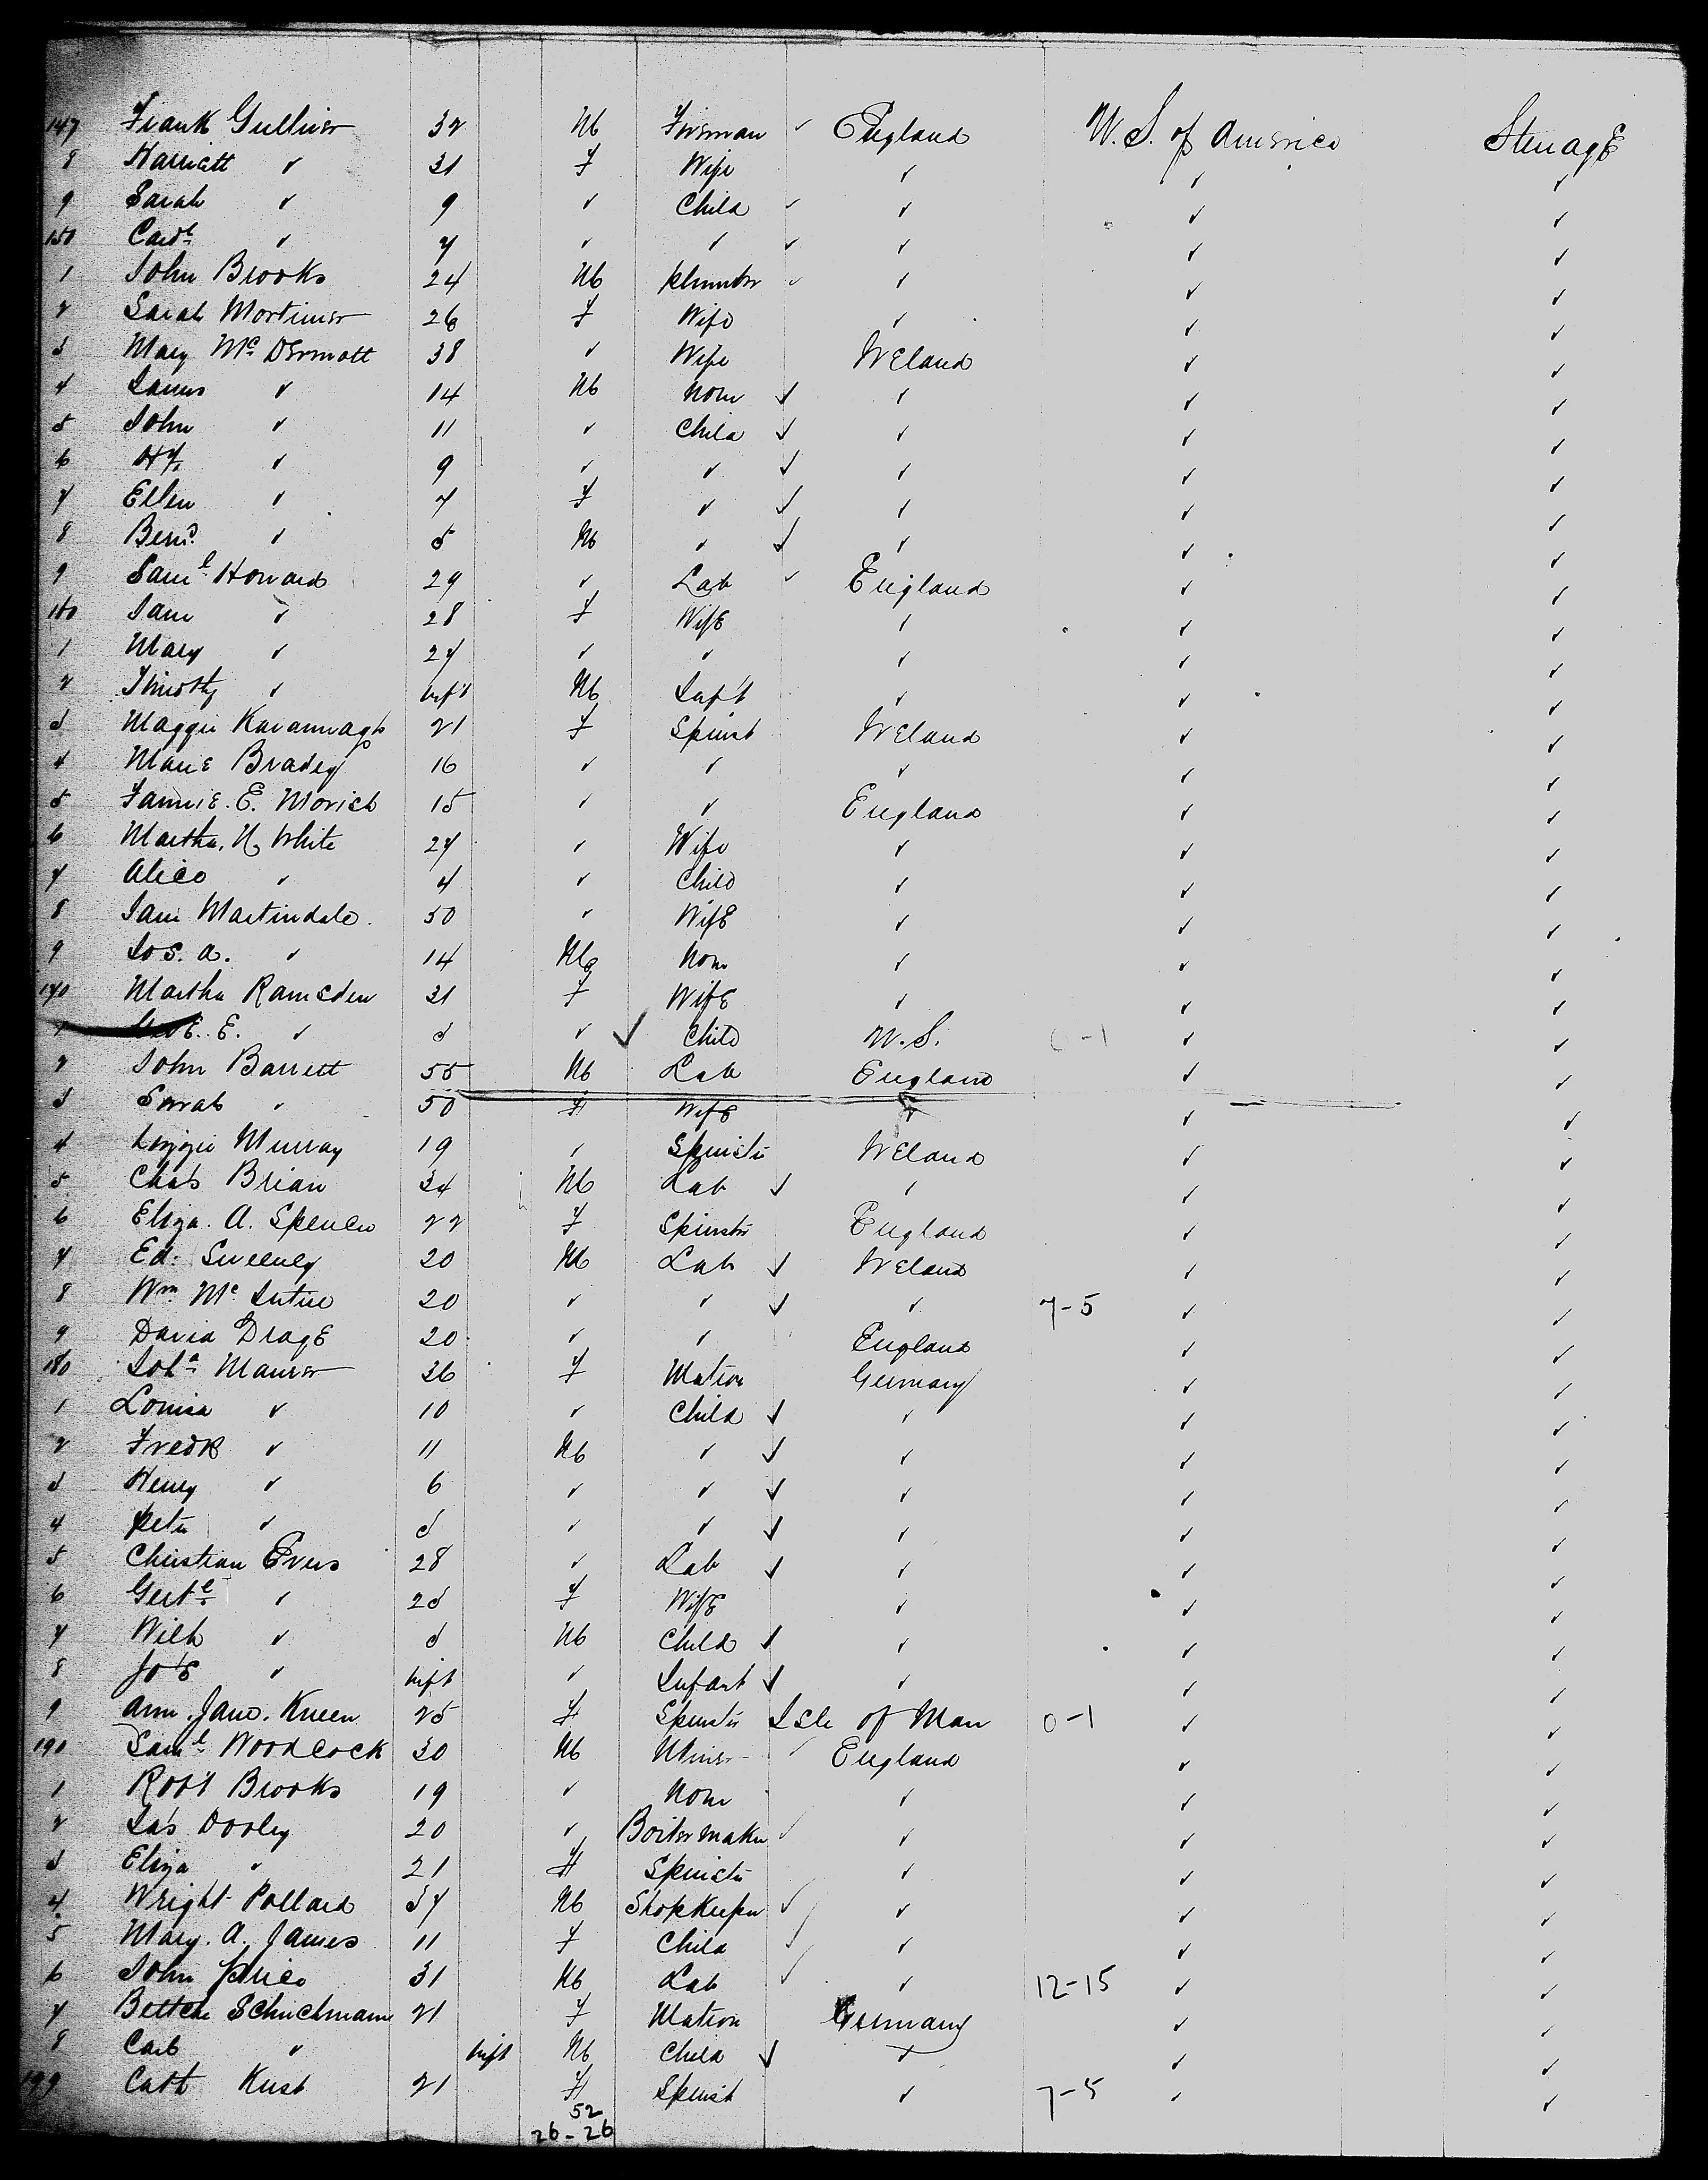 147 Frank Gulliver 32 M Fireman ✓ England U.S. of America Steerage
8 Harriett ✓ 31 F Wife ✓ ✓ ✓
9 Sarah ✓ 9 ✓ Child ✓ ✓ ✓ ✓
150 ✓ 7 ✓ ✓ ✓ ✓ ✓ ✓
1 John Brooks 24 M plumber ✓ ✓ ✓ ✓
2 Sarah Mortimer 26 F Wife ✓ ✓ ✓
3 Mary Mc Dermott 38 ✓ Wife Ireland ✓ ✓
4 James ✓ 14 M None ✓ ✓ ✓ ✓
5 John ✓ 11 ✓ Child ✓ ✓ ✓ ✓
6 Hy ✓ 9 ✓ ✓ ✓ ✓ ✓ ✓
7 Ellen ✓ 7 F ✓ ✓ ✓ ✓ ✓
8 Bernd ✓ 5 M ✓ ✓ ✓ ✓ ✓
9 Saml Howard 29 ✓ Lab ✓ England ✓ ✓
160 Jane ✓ 28 F Wife ✓ ✓ ✓
1 Mary ✓ 27 ✓ ✓ ✓ ✓ ✓
2 Timothy ✓ inft M Inft ✓ ✓ ✓
3 Maggie Kavannagh 21 F Spinst Ireland ✓ ✓
4 Marie Bradey 16 ✓ ✓ ✓ ✓ ✓
5 Fannie. E. 15 ✓ ✓ England ✓ ✓
6 Martha. H. White 27 ✓ Wife ✓ ✓ ✓
7 Alice ✓ 4 ✓ Child ✓ ✓ ✓
8 Jane Martindale 30 ✓ Wife ✓ ✓ ✓
9 Jos. A. ✓ 14 M None ✓ ✓ ✓
170 Martha Ramsden 31 F Wife ✓ ✓ ✓
1 E. ✓ 3 ✓ ✓ Child U.S. -1 ✓ ✓
2 John Barrett 55 M Lab England ✓ ✓
3 Sarah ✓ 50 F Wife ✓ ✓ ✓
4 Lizzie Murray 19 ✓ Spinster Ireland ✓ ✓
5 Chas Brian 34 M Lab ✓ ✓ ✓ ✓
6 Eliza. A. Spencer 22 F Spinster England ✓ ✓
7 Ed. Sweeney 20 M Lab ✓ Ireland ✓ ✓
8 Wm Mc Intire 20 ✓ ✓ ✓ ✓ 7-5 ✓ ✓
9 David Drage 20 ✓ ✓ England ✓ ✓
180 Joha Maurer 36 F Matron Germany ✓ ✓
1 Louisa ✓ 10 ✓ Child ✓ ✓ ✓ ✓
2 Fredk ✓ 11 M ✓ ✓ ✓ ✓ ✓
3 Henry ✓ 6 ✓ ✓ ✓ ✓ ✓ ✓
4 Peter ✓ 3 ✓ ✓ ✓ ✓ ✓ ✓
5 Christian Evers 28 ✓ Lab ✓ ✓ ✓ ✓
6 Gerte ✓ 23 F Wife ✓ ✓ ✓
7 Wilh ✓ 3 M Child ✓ ✓ ✓ ✓
8 ✓ inft ✓ Infant ✓ ✓ ✓ ✓
9 Ann. Jane. Kneen 25 F Spinster Isle of Man 0-1 ✓ ✓
190 Saml Woodcock 30 M Miner ✓ England ✓ ✓
1 Robt Brooks 19 ✓ None ✓ ✓ ✓
2 Jas Dooley 20 ✓ Boilermaker ✓ ✓ ✓ ✓
3 Eliza ✓ 21 F Spinster ✓ ✓ ✓
4 Wright Pollard 37 M Shopkeeper ✓ ✓ ✓ ✓
5 Mary. A. James 11 F Child ✓ ✓ ✓ ✓
6 John Price 31 M Lab ✓ ✓ 12-15 ✓ ✓
7 Schuchmann 21 F Matron Germany ✓ ✓
8 Carl ✓ inft M Child ✓ ✓ ✓ ✓
199 Cath Kust 21 F Spinst ✓ 7-5 ✓ ✓
52
26-26